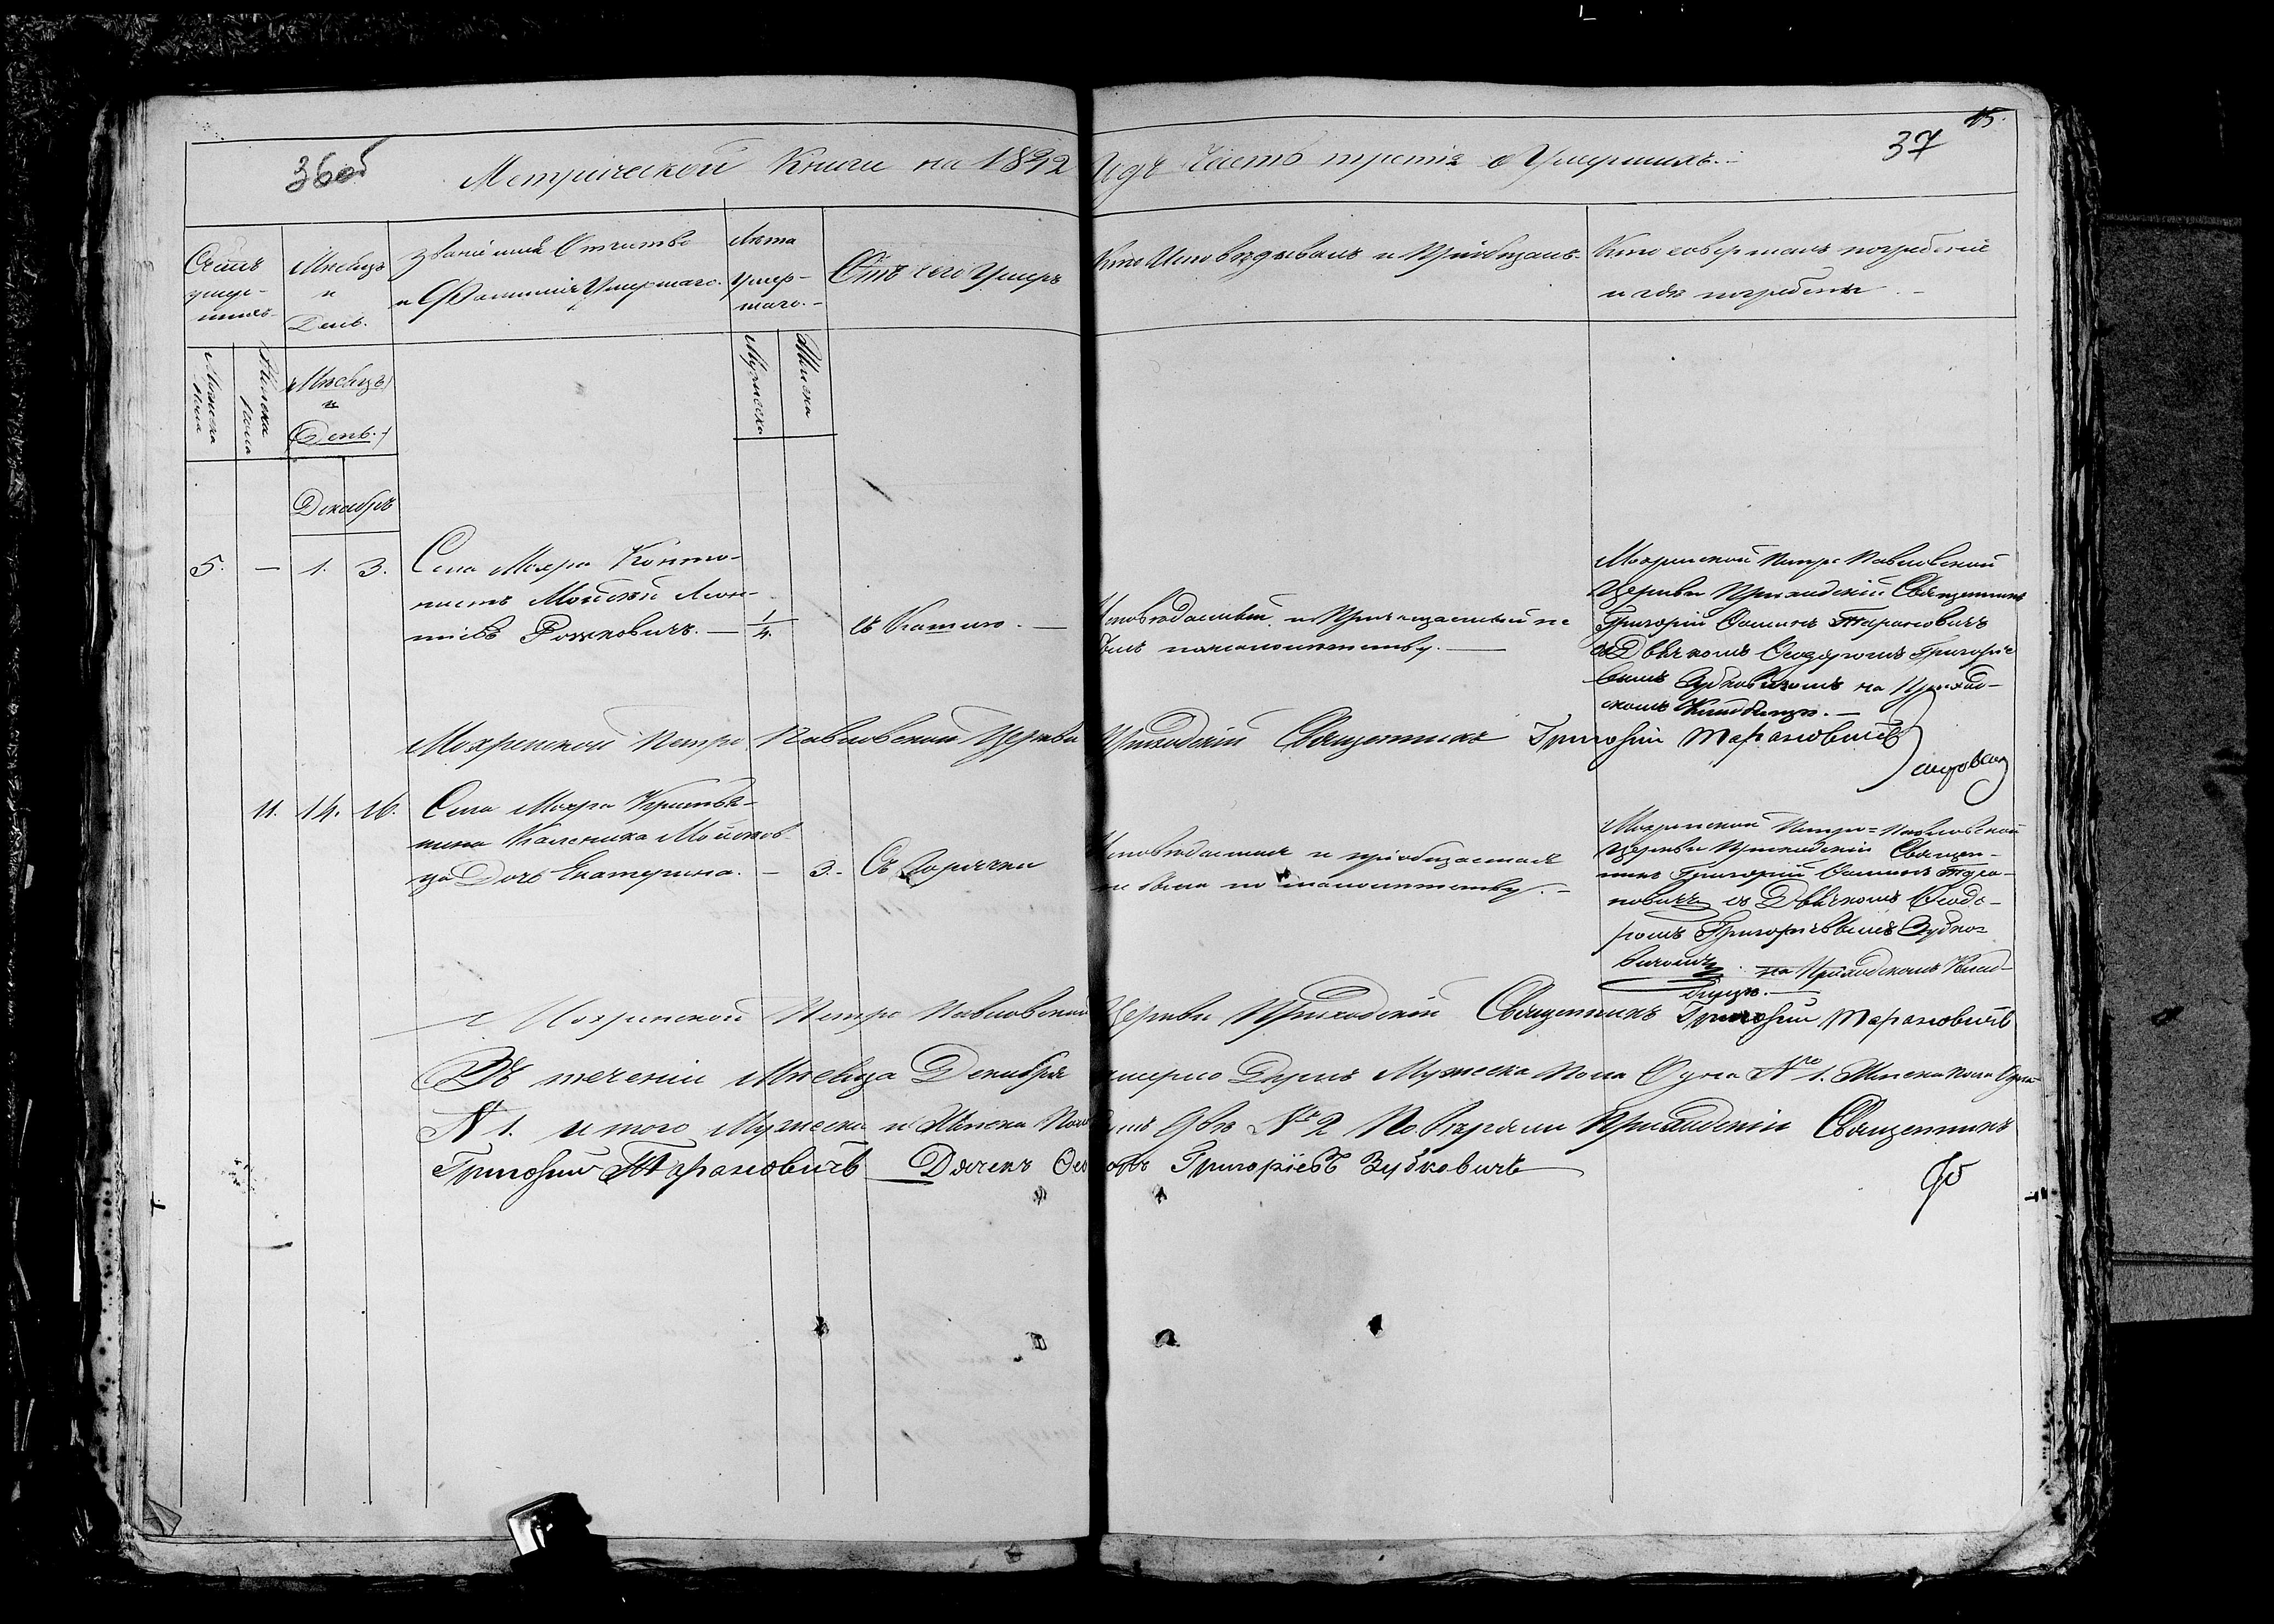 36об
37
15.
Метрической Книги на 1842 Годъ Часть третія о Умершихъ.
Счетъ умер-
шихъ
Мѣсяцъ
и
День.
Званіе имя Отчество
и Фамилія Умершаго.
Лѣта
умер-
шаго.
Отъ чего Умеръ
Кто Исповѣдывалъ и Пріобщалъ.
Кто совершалъ погребеніе
и гдѣ погребены
Мужеска
пола
Женска
пола
Мѣсяцъ
и
День.
Мужеска
Женска
Декабрь
5. — 1. 3.
Села Мохра
нистъ Мойсей Леон-
тіевъ Рожковичъ. —
1/4.
съ Кашлю. —
Исповѣданный и Пріобщанный не
былъ помалолѣтству. —
Мохринской Петро Павловской
Церкви Приходскій Священникъ
Григорій Фоминъ Тарановичъ
съ Дьячкомъ Феодоромъ Григорie
вымъ Зубковичомъ на Приход-
скомъ Кладбищѣ. —
Мохринской Петро Павловской Церкви Приходскій Священникъ Григорій Тарановичъ
11. 14. 16.
Села Мохра Крестья-
нина Каленика Мойсеев-
ца Дочь Екатерина. —
3.
Съ Горячки
Исповѣданная и пріобщанная
не была по малолѣтству. —
Мохринской Петро=Павловской
Церкви Приходскій Священ-
никъ Григорій Фоминъ Тара-
новичъ съ Дьячкомъ Феодо-
ромъ Григорьевымъ Зубко=
вичомъ на Приходскомъ Клад-
бищѣ. —
Мохринской Петро Павловской Церкви Приходскій Священникъ Григорій Тарановичъ
Въ теченіи Мѣсяца Декабря умерло Душъ Мужеска пола Одна № 1. Женска пола Одна
№ 1. итого Мужеска и Женска Пола душъ Двѣ № 2 Повѣряли Приходскій Священникъ
Григорій Тарановичъ Дячекъ Феодоръ Григоріевъ Зубковичъ